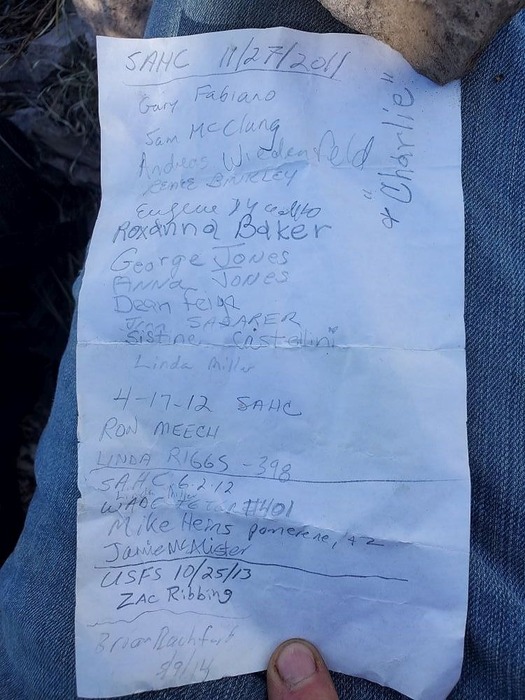 SAHC 11/27/2011
& "Charlie"
Gary Fabiano
Sam McClung
Andreas Wiedenfeld
Renee Binkley
Eugene
Roxanna Baker
George Jones
Anna Jones
Dean
SADARER
Sistine Castellini
Linda Miller
4-17-12 SAHC
RON MEECH
LINDA RIGGS -398
SAHC 6.2.12
WADE #401
Mike Heins Pomerene, AZ
Jamie McAlister
USFS 10/25/13
ZAC Ribbing
Brian
/9/14